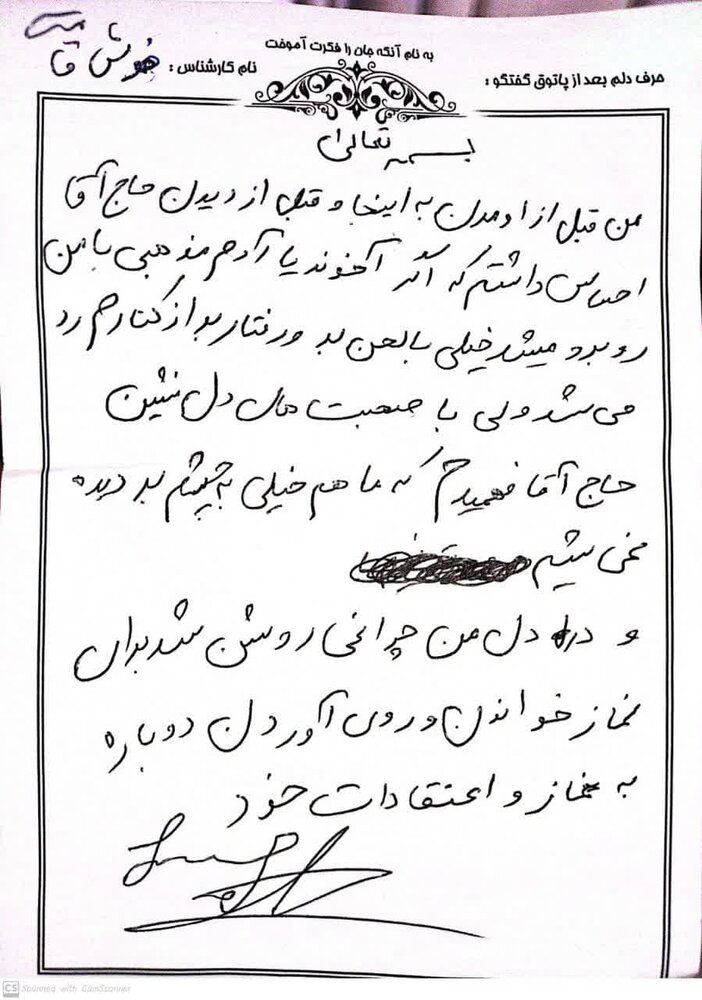 به نام آنکه جان را فکرت آموخت
حرف دلم بعد از پاتوق گفتگو :
نام کارشناس :
بسمه تعالی
من قبل از اومدن به اینجا و قبل از دیدن حاج آقا
احساس داشتم که اگر آخوند یا آدم مذهبی با من
روبرو میشد خیلی با لحن بد و رفتار بد از کنارم رد
می شد ولی با صحبت های دل نشین
حاج آقا فهمیدم که ما هم خیلی به چشم بد دیده
نمی شیم
و در دل من چراغی روشن شد برای
نماز خواندن و روی آوردن دوباره
به نماز و اعتقادات خود
CS Scanned with CamScanner